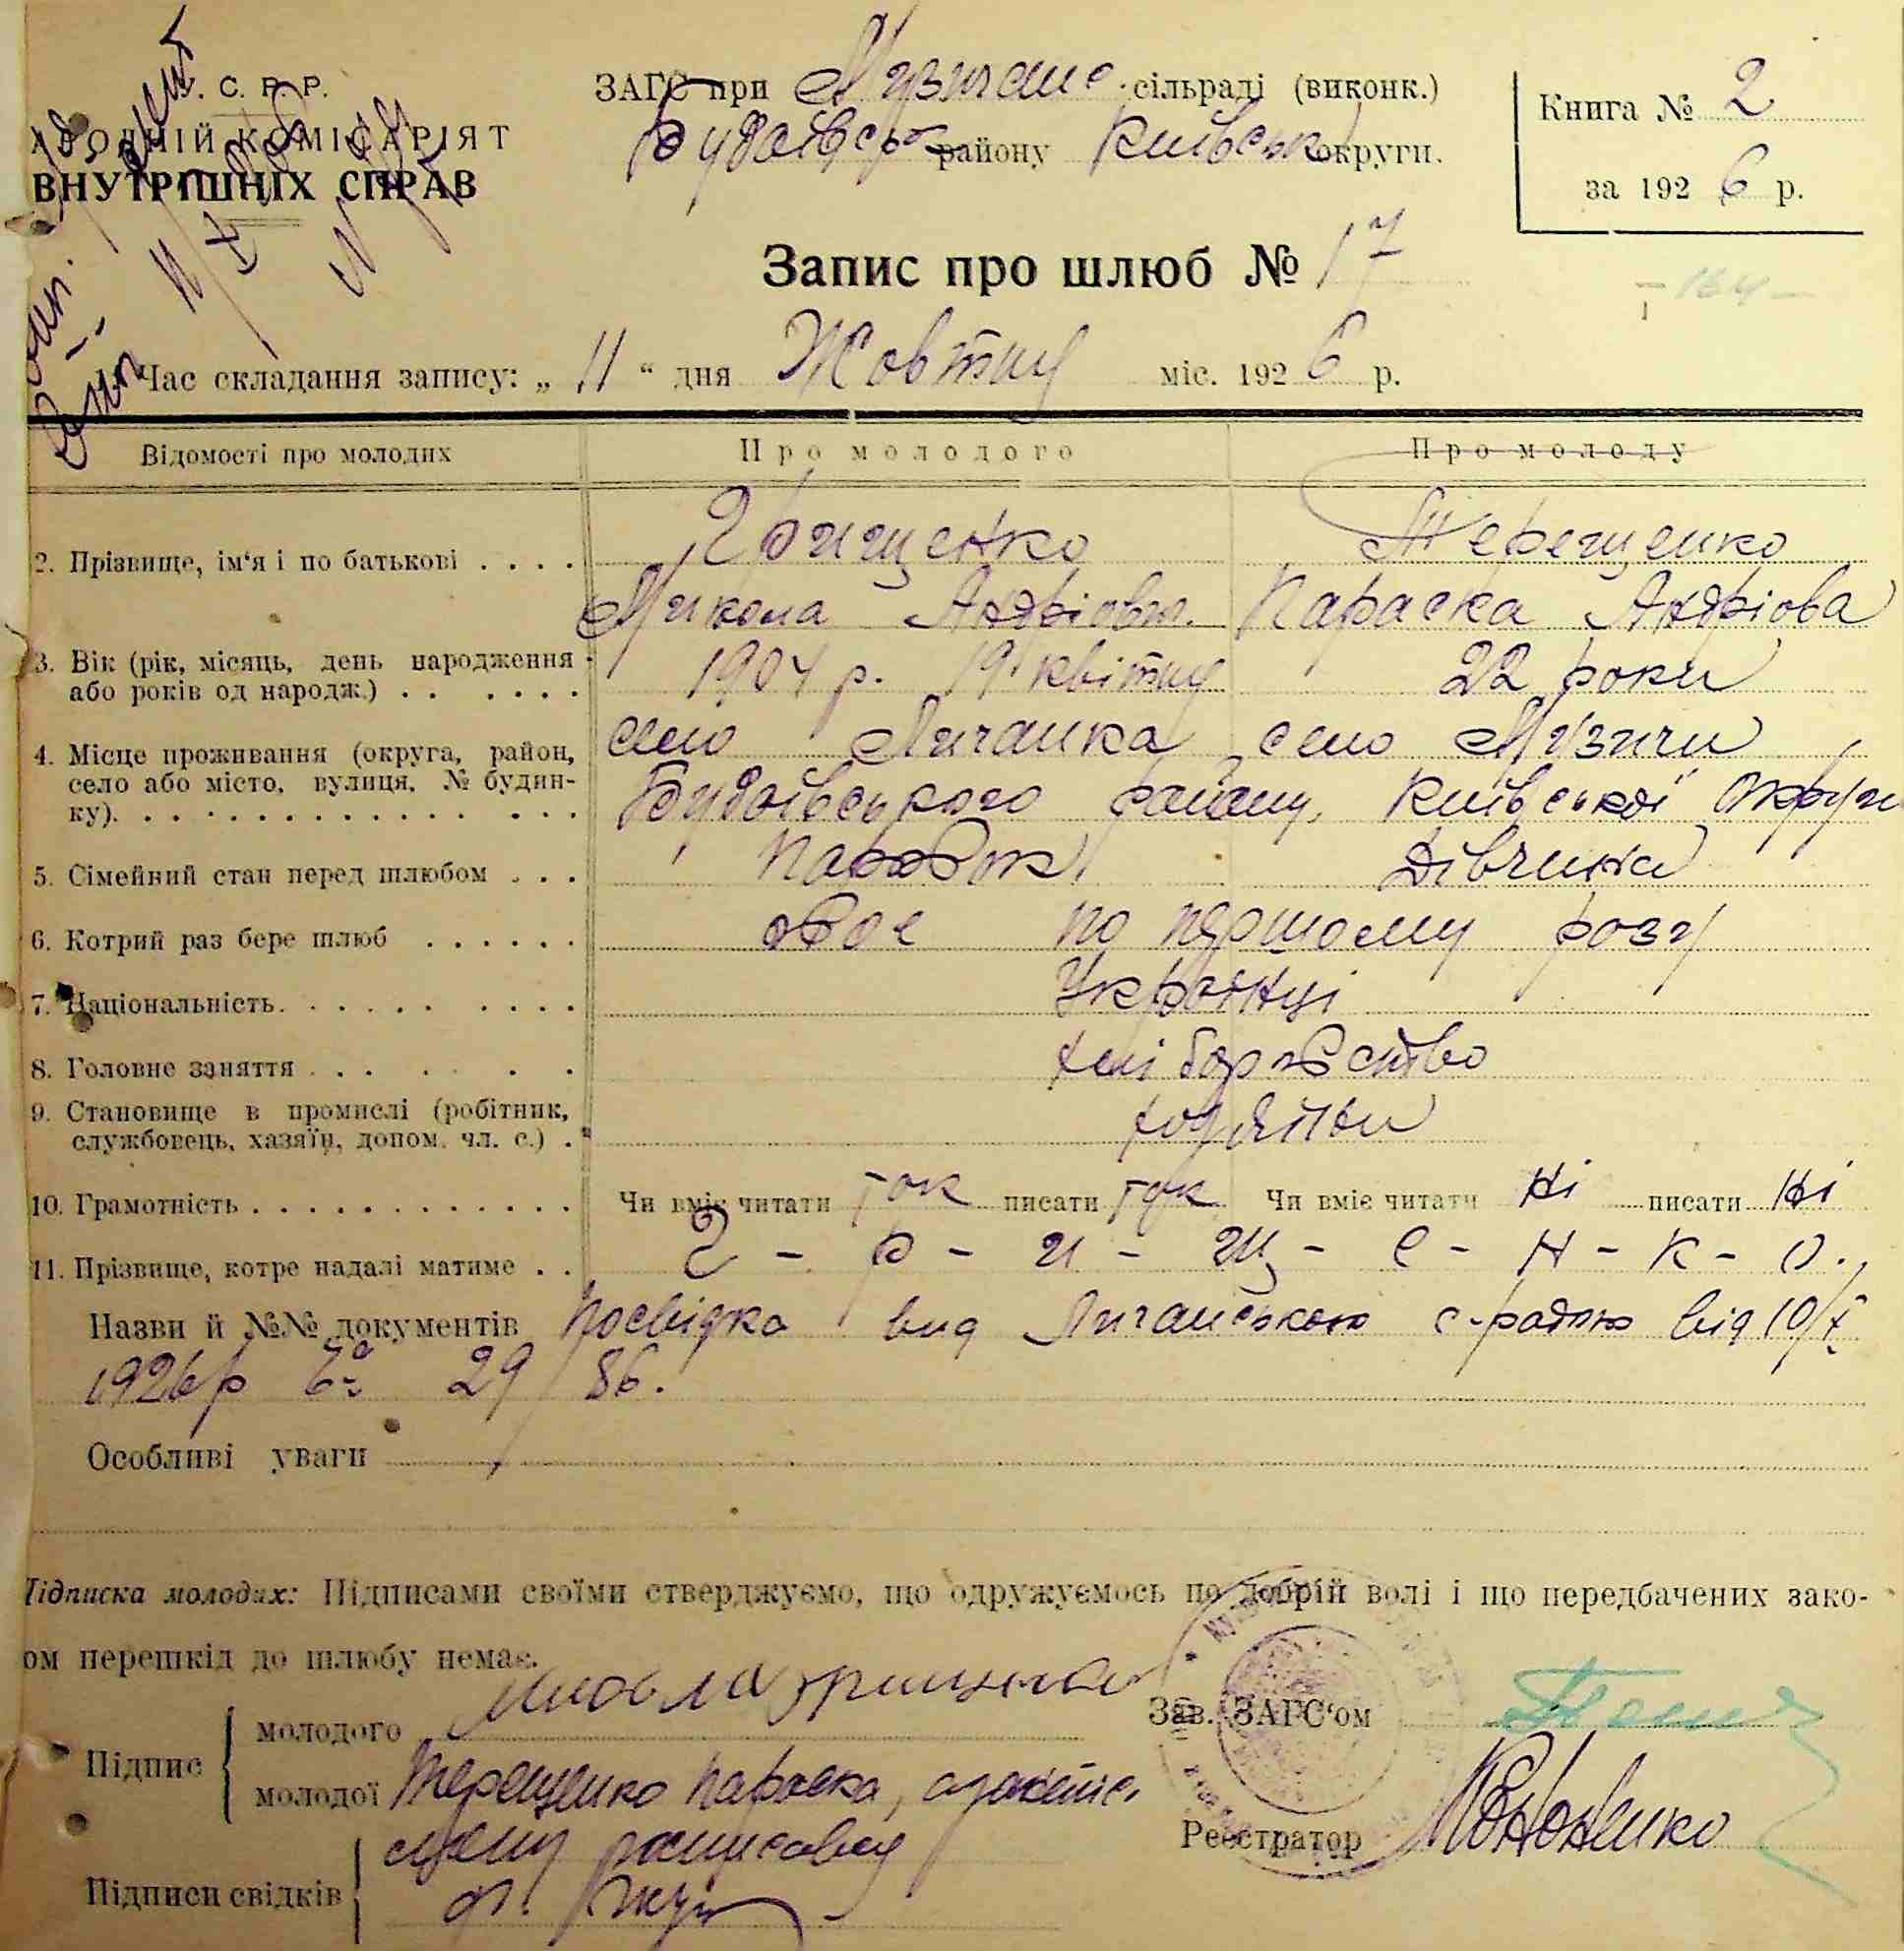 . С. Р. Р.
АРОДНІЙ КОМІСАРІЯТ
ВНУТРІШНІХ СПРАВ
ЗАГС при Музичанс сільраді (виконк.)
Будаївськ району Київськ округи.
Книга № 2
за 1926 р.
Запис про шлюб № 17
Час складання запису: „ 11 “ дня Жовтню міс. 1926 р.
Відомості про молодих Про молодого Про молоду
2. Прізвище, ім‘я і по батькові . . . . Грищенко Терещенко
Микола Андріов. Параска Андріова
3. Вік (рік, місяць, день народження 1904 р. 19 квітню 22 роки
або років од народж.) . . . . . .
4. Місце проживання (округа, район, село Личанка село Музичи
село або місто, вулиця, № будин- Будаївського району, Київської округи
ку). . . . . . . . . . . . . . . .
5. Сімейний стан перед шлюбом . . . Парубок Дівчина
6. Котрий раз бере шлюб . . . . . . обое по першому разу
7. Національність. . . . . . . . . . Українці
8. Головне заняття . . . . . . . хліборобство
9. Становище в промислі (робітник,
службовець, хазяїн, допом. чл. с.) .
10. Грамотність . . . . . . . . . . . . . Чи вміє читати так писати так Чи вміє читати Ні писати Ні
11. Прізвище, котре надалі матиме . . Г - р - и - щ - е - н - к - о.
Назви й №№ документів Посвідка вид Личанською с-радою від 10/X
1926 р за 29/86.
Особливі уваги
Підписка молодих: Підписами своїми стверджуємо, що одружуємось по добрій волі і що передбачених зако-
ом перешкід до шлюбу немає.
Підпис
молодого Микола Грищенко
молодої Терещенко Параска, а
росписавсь
Підписи свідків
Зав. ЗАГС‘ом
Реєстратор Кононенко